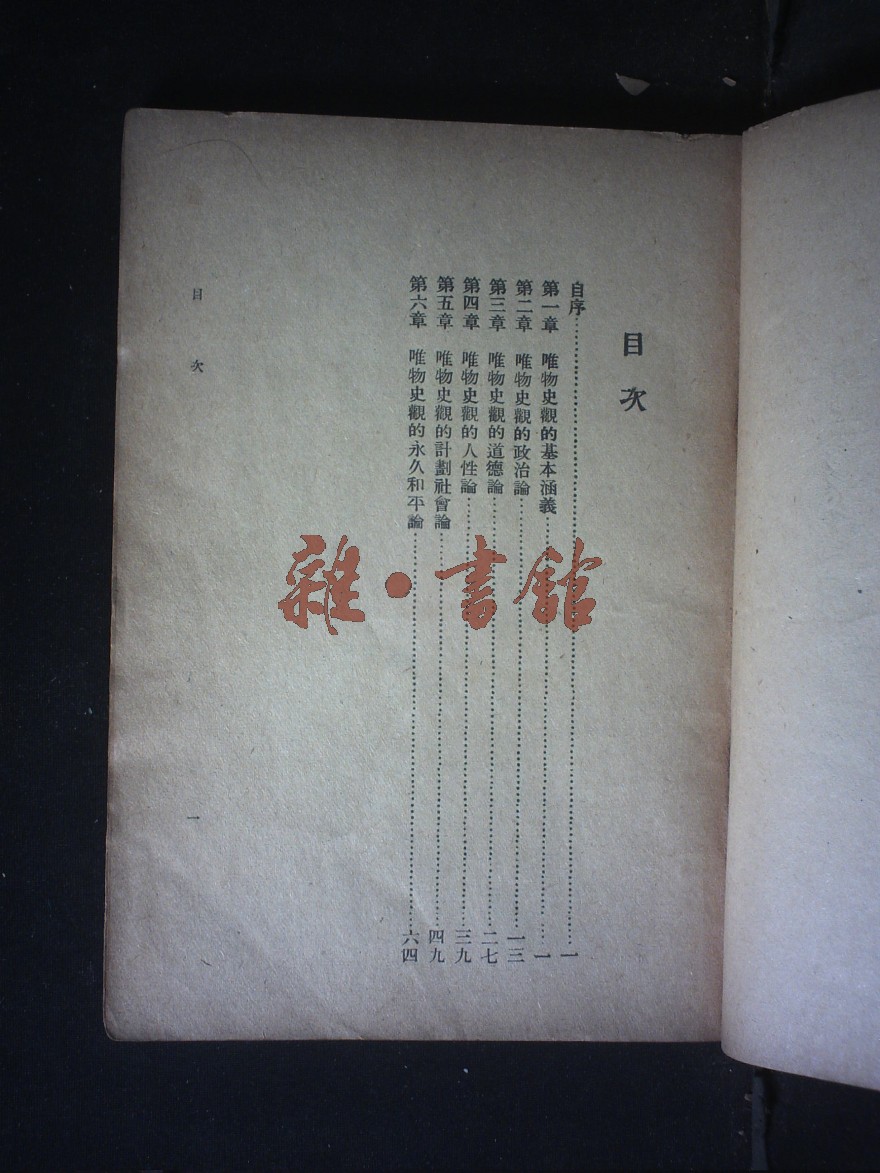 目次
自序……一
第一章 唯物史觀的基本涵義……一
第二章 唯物史觀的政治論……一三
第三章 唯物史觀的道德論……二七
第四章 唯物史觀的人性論……三九
第五章 唯物史觀的計劃社會論……四九
第六章 唯物史觀的永久和平論……六四
目次 一
雜·書館